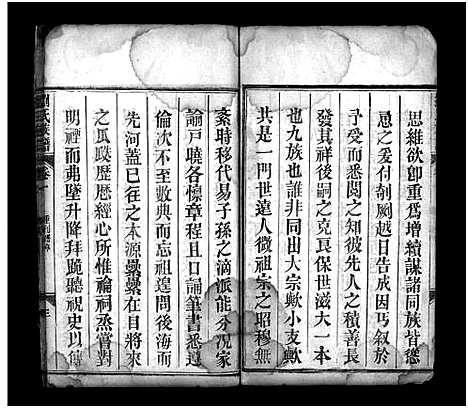 思維欲卽重爲增續謀諸同族皆慫
愚之爰付剞劂越日告成因丐敘於
予受而悉閱之知彼先人之積善長
發其祥後嗣之克艮保世滋大一本
也九族也誰非同出大宗歟小支歟
其是一門世遠人微祖宗之昭穆無
紊時移代易子孫之滴派能分況家
諭戶曉各懍章程且口誦筆書悉遵
倫次不至數典而忘祖遑問後海而
先河蓋已往之本源纍纍在目將來
之瓜瓞歴歴經心所惟禴祠烝嘗對
明禋而弗墜升降拜跪聽視史以傳
劉氏族譜
卷一
三